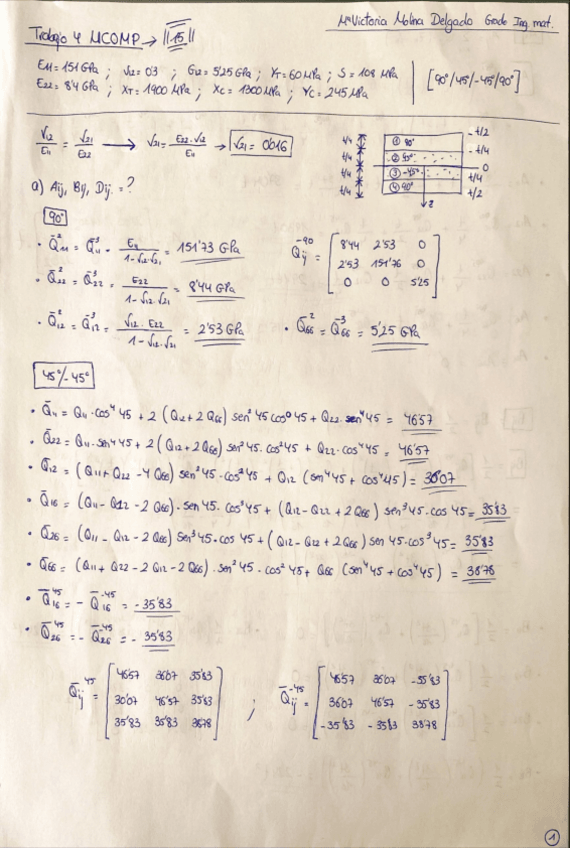 Mª Victoria Molina Delgado Grado Ing mat.
Trabajo 4 MCOMP → ||15||
E11 = 151 GPa ; √12 = 0'3 ; G12 = 5'25 GPa ; YT = 60 MPa ; S = 108 MPa
E22 = 8'4 GPa ; XT = 1900 MPa ; XC = 1300 MPa ; YC = 245 MPa
[90°/45/-45/90°]
√12/E11 = √21/E22 → √21 = E22·√12/E11 → √21 = 0'016
t/4 ① 90° -t/2
t/4 ② 45° -t/4
0
t/4 ③ -45° t/4
t/4 ④ 90° t/2
z
a) Aij, Bij, Dij = ?
90°
• Q̄11² = Q̄11³ = E11/(1-√12·√21) = 151'73 GPa
• Q̄22² = Q̄22³ = E22/(1-√12·√21) = 8'44 GPa
• Q̄12² = Q̄12³ = √12·E22/(1-√12·√21) = 2'53 GPa
Q̄ij⁻⁹⁰ = [8'44 2'53 0
2'53 151'76 0
0 0 5'25]
• Q̄66² = Q̄66³ = 5'25 GPa
45°/-45°
• Q̄11 = Q11·cos⁴45 + 2 (Q12+2Q66) sen²45 cos²45 + Q22·sen⁴45 = 46'57
• Q̄22 = Q11·sen⁴45 + 2 (Q12+2Q66) sen²45·cos²45 + Q22·cos⁴45 = 46'57
• Q̄12 = (Q11+Q22-4Q66) sen²45·cos²45 + Q12 (sen⁴45 + cos⁴45) = 36'07
• Q̄16 = (Q11-Q12-2Q66)·sen45·cos³45 + (Q12-Q22+2Q66) sen³45·cos45 = 35'83
• Q̄26 = (Q11-Q12-2Q66) sen³45·cos45 + (Q12-Q22+2Q66) sen45·cos³45 = 35'83
• Q̄66 = (Q11+Q22-2Q12-2Q66)·sen²45·cos²45 + Q66 (sen⁴45+cos⁴45) = 38'78
• Q̄16⁴⁵ = -Q̄16⁻⁴⁵ = -35'83
• Q̄26⁴⁵ = -Q̄26⁻⁴⁵ = -35'83
Q̄ij⁴⁵ = [46'57 36'07 35'83
30'07 46'57 35'83
35'83 35'83 38'78] ;
Q̄ij⁻⁴⁵ = [46'57 36'07 -35'83
36'07 46'57 -35'83
-35'83 -35'83 38'78]
①